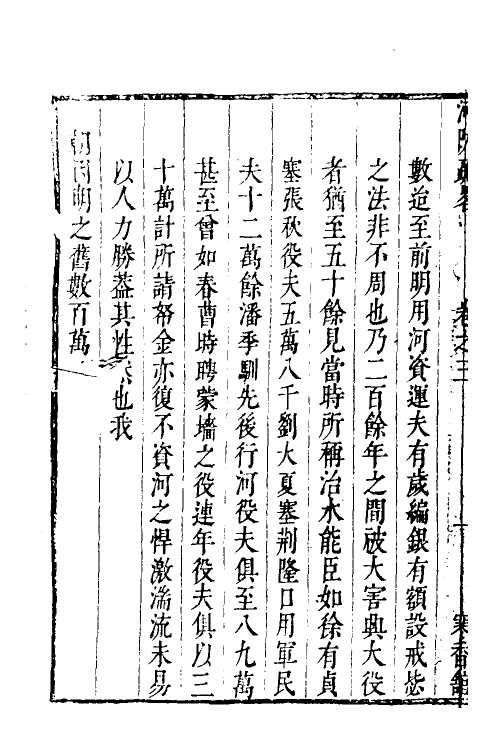 河防疏畧 卷之三 寒香館
數迨至前明用河資運夫有歲編銀有額設戒怭
之法非不周也乃二百餘年之間破大害興大役
者猶至五十餘見當時所稱治水能臣如徐有貞
塞張秋役夫五萬八千劉大夏塞荆隆口用軍民
夫十二萬餘潘季馴先後行河役夫俱至八九萬
甚至曾如春曹時聘蒙墻之役連年役夫俱以三
十萬計所請帑金亦復不資河之悍激湍流未易
以人力勝葢其性然也我
朝因明之舊數百萬